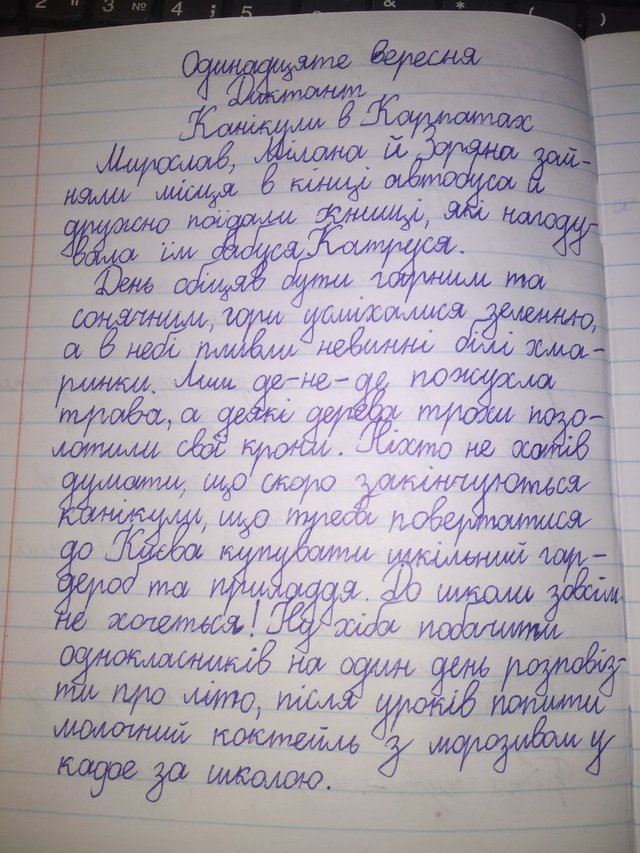 Одинадцяте вересня
Диктант
Канікули в Карпатах
Мирослав, Мілана й Зоряна зай-
няли місця в кінці автобуса й
дружно поїдали книші, які нагоду-
вала їм бабуся Катруся.
День обіцяв бути гарним та
сонячним, гори усміхалися зеленню,
а в небі пливли невинні білі хма-
ринки. Лиш де-не-де пожухла
трава, а деякі дерева трохи позо-
лотили свої крони. Ніхто не хотів
думати, що скоро закінчуються
канікули, що треба повертатися
до Києва купувати шкільний гар-
дероб та приладдя. До школи зовсім
не хочеться! Ну хіба побачити
однокласників на один день розповіс-
ти про літо, після уроків попити
молочний коктейль з морозивом у
кафе за школою.